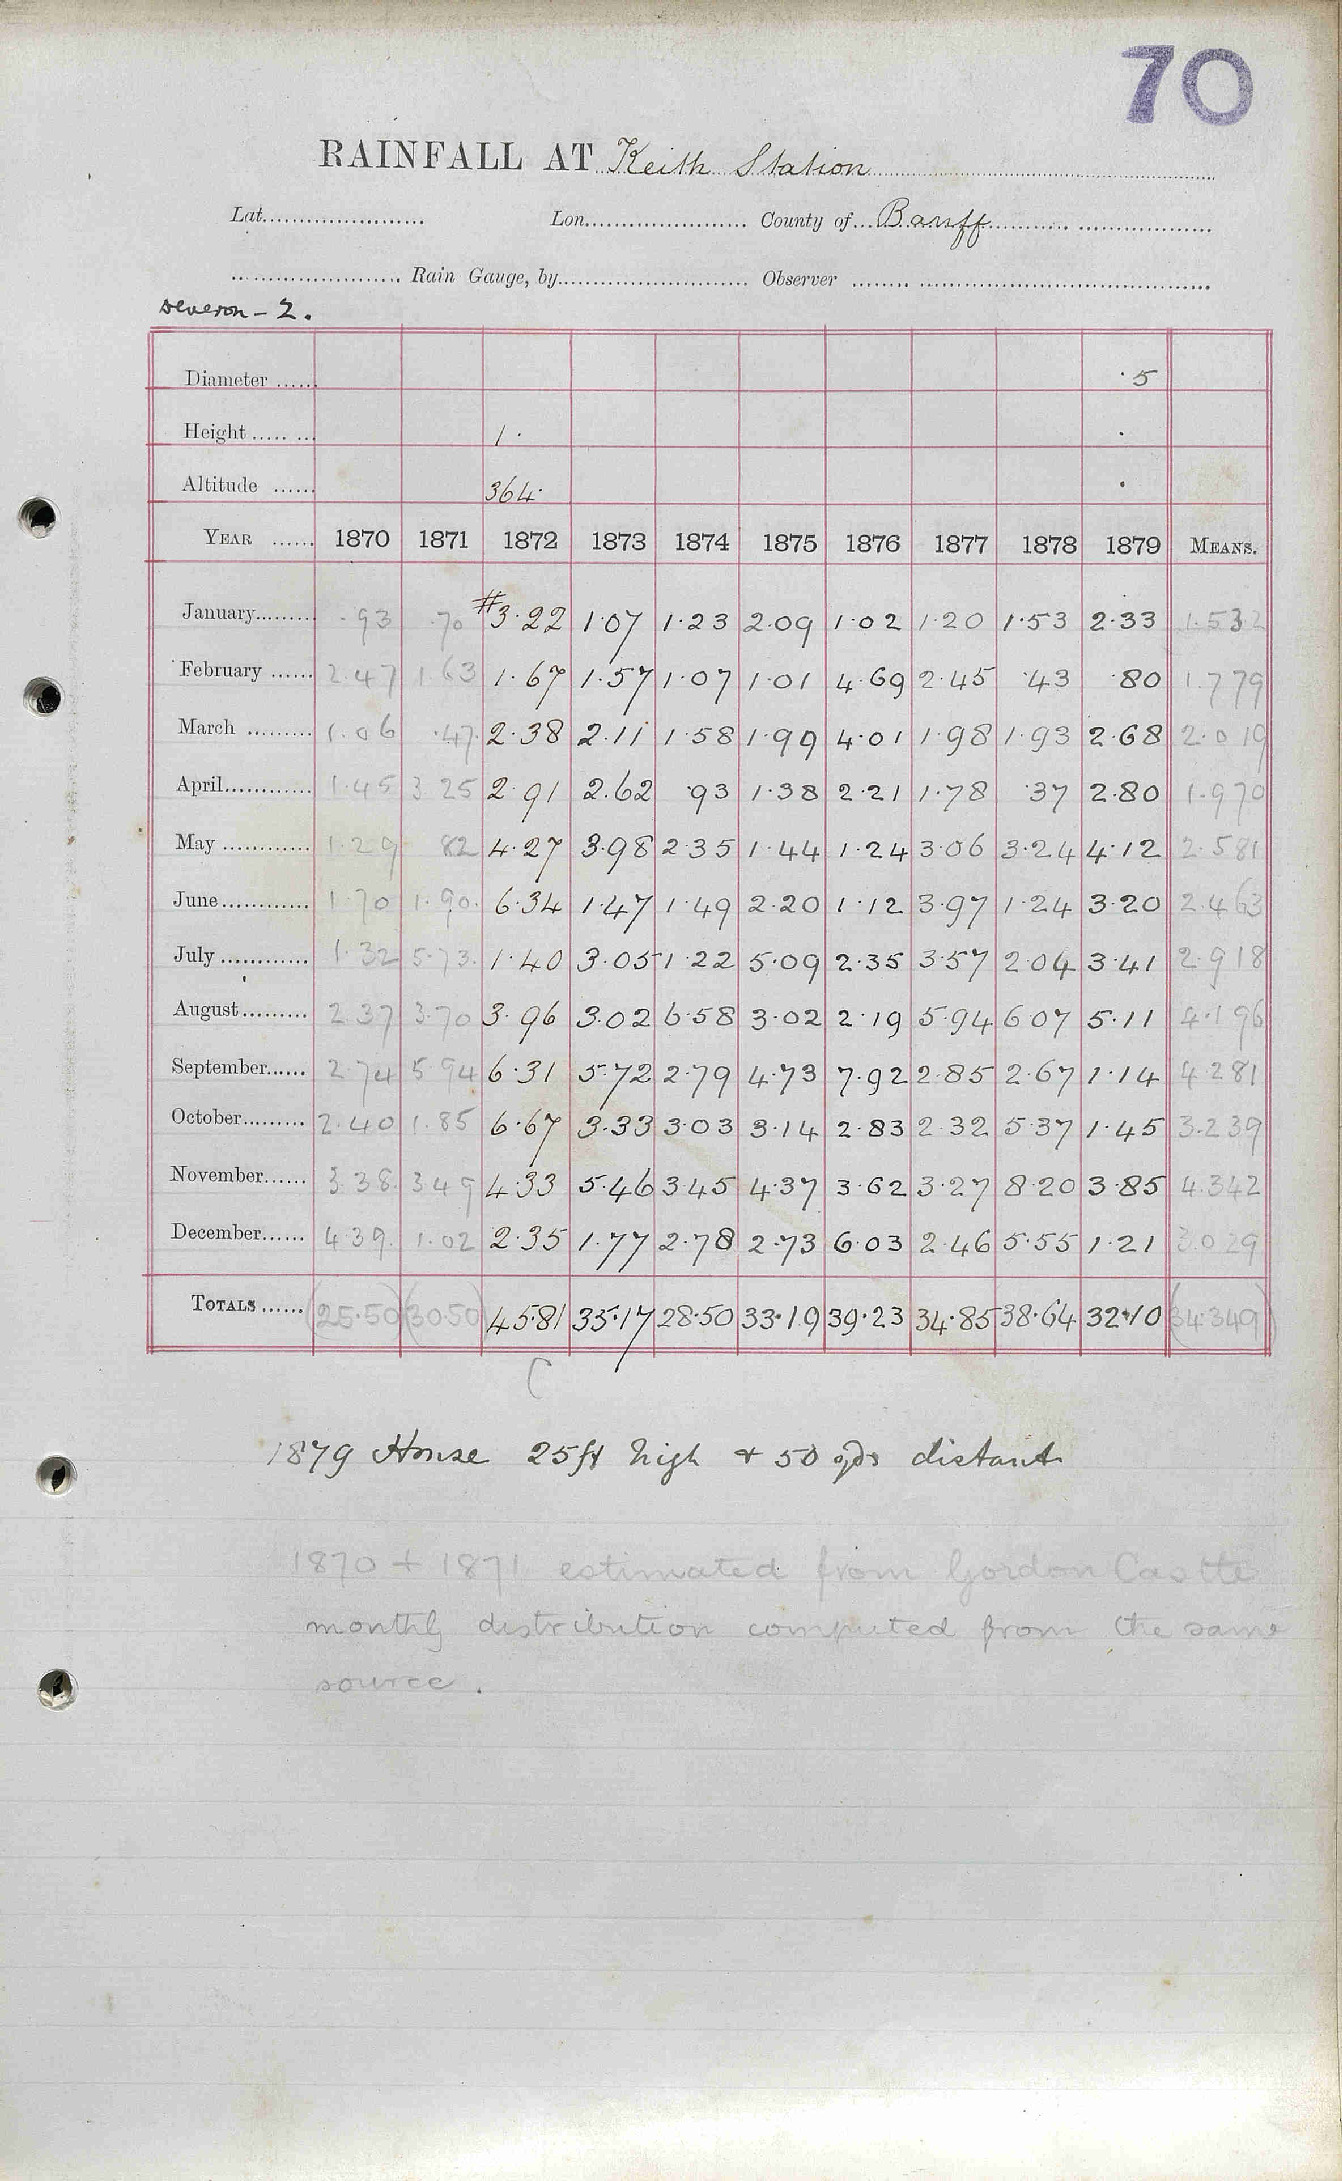 70
RAINFALL AT Keith Station
Lat. Lon. County of Banff
Rain Gauge, by Observer
Deveron - 2.
Diameter ·5
Height 1·
Altitude 364·
YEAR 1870 1871 1872 1873 1874 1875 1876 1877 1878 1879 MEANS.
January ·93 ·70 #3·22 1·07 1·23 2·09 1·02 1·20 1·53 2·33 1·532
February 2·47 1·63 1·67 1·57 1·07 1·01 4·69 2·45 ·43 ·80 1·779
March 1·06 ·47 2·38 2·11 1·58 1·99 4·01 1·98 1·93 2·68 2·019
April 1·45 3·25 2·91 2·62 ·93 1·38 2·21 1·78 ·37 2·80 1·970
May 1·29 ·82 4·27 3·98 2·35 1·44 1·24 3·06 3·24 4·12 2·581
June 1·70 1·90 6·34 1·47 1·49 2·20 1·12 3·97 1·24 3·20 2·463
July 1·32 5·73 1·40 3·05 1·22 5·09 2·35 3·57 2·04 3·41 2·918
August 2·37 3·70 3·96 3·02 6·58 3·02 2·19 5·94 6·07 5·11 4·196
September 2·74 5·94 6·31 5·72 2·79 4·73 7·92 2·85 2·67 1·14 4·281
October 2·40 1·85 6·67 3·33 3·03 3·14 2·83 2·32 5·37 1·45 3·239
November 3·38 3·49 4·33 5·46 3·45 4·37 3·62 3·27 8·20 3·85 4·342
December 4·39 1·02 2·35 1·77 2·78 2·73 6·03 2·46 5·55 1·21 3·029
TOTALS (25·50) (30·50) 45·81 35·17 28·50 33·19 39·23 34·85 38·64 32·10 (34·349)
C
1879 House 25ft high + 50 yds distant
1870 + 1871 estimated from Gordon Castle
monthly distribution computed from the same
source.